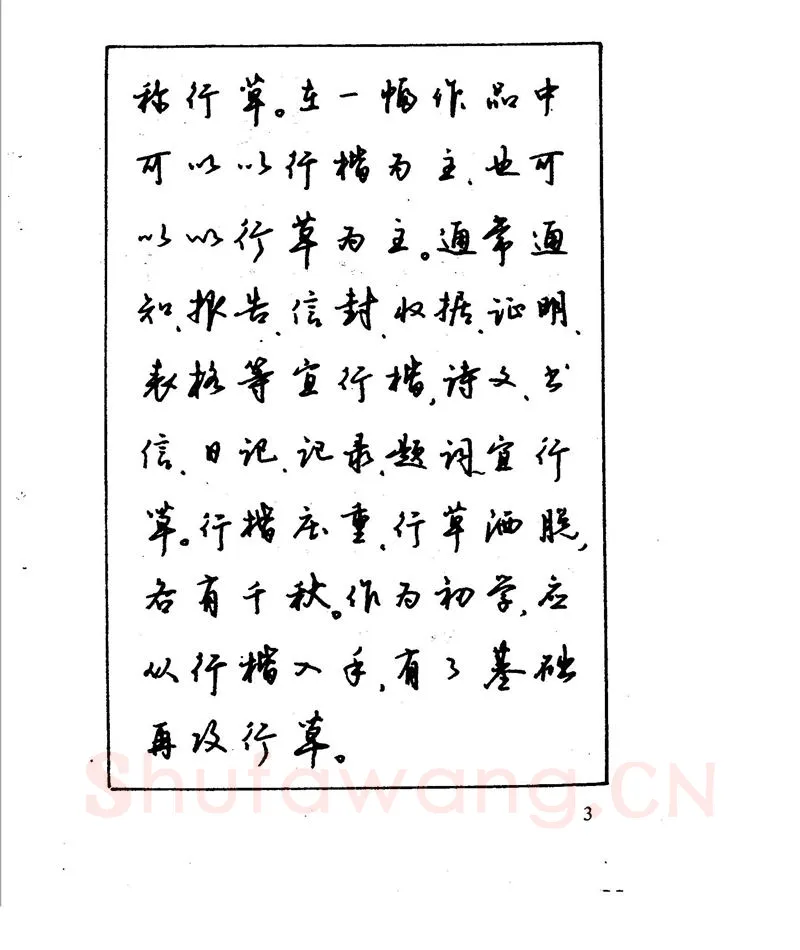 称行草。在一幅作品中
可以以行楷为主、也可
以以行草为主。通常通
知、报告、信封、收据、证明、
表格等宜行楷,诗文、书
信、日记、记录、题词、宜行
草。行楷庄重、行草洒脱,
各有千秋。作为初学,应
从行楷入手,有了基础
再攻行草。
Shufawang.CN
3